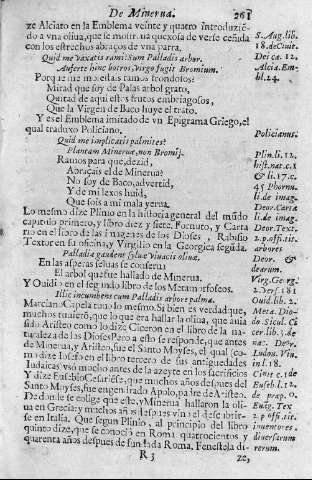 De Minerva. 261
ze Alciato en la Emblema veinte y quatro introduziẽ-
do a vna oliua, que se mostraua quexosa de verse ceñida
con los estrechos abraços de vna parra,
Quid me vexatis rami? Sum Palladis arbor.
Auferte hinc botros, virgo fugit Bromium.
Porque me molestais ramos frondosos?
Mirad que soy de Palas arbol grato,
Quitad de aqui estos frutos embriagosos,
Que la Virgen de Baco huye el trato.
Y es el Emblema imitado de vn Epigrama Griego, el
qual traduxo Policiano.
Quid me implicatis palmites?
Plantam Mineruæ, non Bromij.
Ramos para que, dezid,
Abraçais el de Minerua?
No soy de Baco, advertid,
Y de mi lexos huid,
Que sois a mi mala yerua.
Lo mesmo dize Plinio en la historia general del mũdo
capitulo primero, y libro diez y siete, Fornuto, y Carta
rio en el libro de las imagenes de los Dioses, Rabisio
Textor en su oficina, y Virgilio en la Georgica segũda.
Palladia gaudent syluæ viuacis oliuæ.
En las asperas seluas se conserua
El arbol que fue hallado de Minerua.
Y Ouidio en el segundo libro de los Metamorfoseos.
Ille incumbens cum Palladis arbore palmæ.
Marcian. Capela tuuo lo mesmo. Si bien es verdad que,
muchos tuuierõ, que lo que era hallar la oliua, que auia
sido Aristeo como lo dize Ciceron en el libro de la na-
turaleza de los Dioses Pero a esto se responde, que antes
de Minerua, y Aristeo, fue el Santo Moyses, el qual (co-
mo dize Iosefo en el libro tercero de sus antiguedades
Iudaicas) vsò mucho antes de la azeyte en los sacrificios
Y dize Eusebio Cesariẽse, que muchos años despues del
Santo Moyses, fue engendrado Apolo, padre de Aristeo.
De donde se colige que este, y Minerua hallaron la oli-
ua en Grecia: y muchos años despues vino el descubrir-
se en Italia. Que segun Plinio, al principio del libro
quinto dize, que se conociò en Roma quatrocientos y
quarenta años despues de fundada Roma. Fenestela di-
R 3
ze,
S. Aug. lib.
18. de Ciuit.
Dei ca. 12.
Alcia. Em-
bl. 24.
Policianus.
Plin. li. 12.
hist. nat. c. 1
& li. 17. c.
45 Phornu.
li. de imag.
Deor. Carta
li. de imag.
Deor. Text.
2. p. offi. tit.
arbores
Deor. &
dearum.
Virg. Georg.
2. Vers. 181
Ouid. lib. 2.
Meta. Dio-
do. Sicul. Ci
cer. lib. 3. de
na. Deor.
Ludou. Viu.
in l. 18.
Ciuit c. 1. de
Euseb. l. 12.
de præp. 0.
Eurg. Tex
2. p. offi. tit.
inuentores.
diuersarum
rerum.